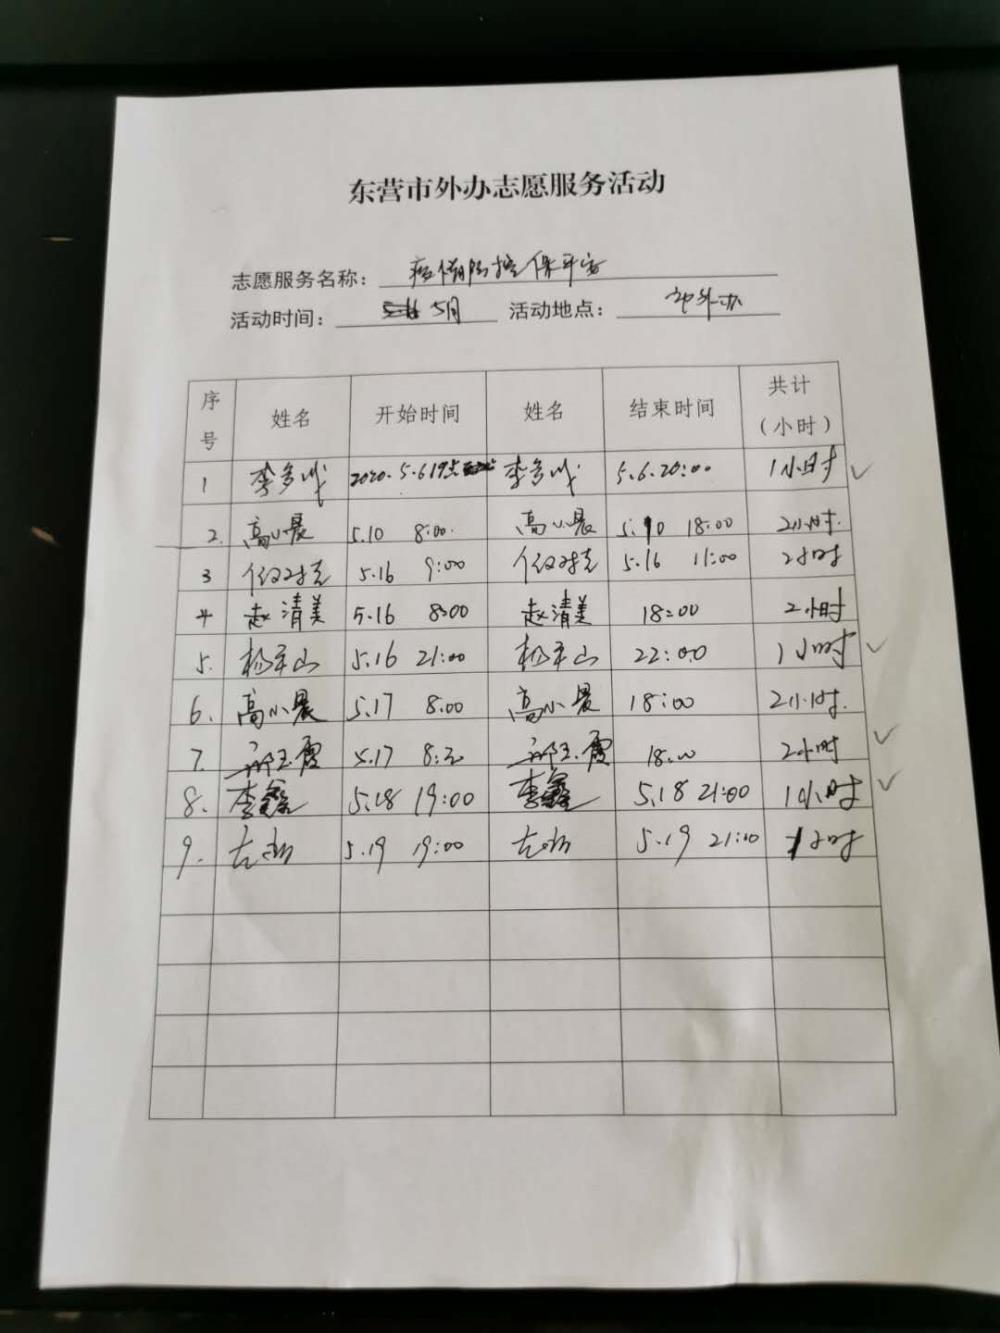 东营市外办志愿服务活动
志愿服务名称： 疫情防控保平安
活动时间： 5月 活动地点： 市外办
序号 姓名 开始时间 姓名 结束时间 共计（小时）
1 李多 2020.5.6 19点 李多 5.6.20:00 1小时 ✓
2. 高小晨 5.10 8:00. 高小晨 5.10 18:00 2小时.
3 5.16 9:00 5.16 11:00 2小时
4 赵清美 5.16 8:00 赵清美 18:00 2小时
5. 杨平山 5.16 21:00 杨平山 22:00 1小时 ✓
6. 高小晨 5.17 8:00 高小晨 18:00 2小时.
7. 玉霞 5.17 玉霞 18:00 2小时 ✓
8. 李鑫 5.18 19:00 李鑫 5.18 21:00 1小时 ✓
9. 左 5.19 19:00 左 5.19 21:00 小时